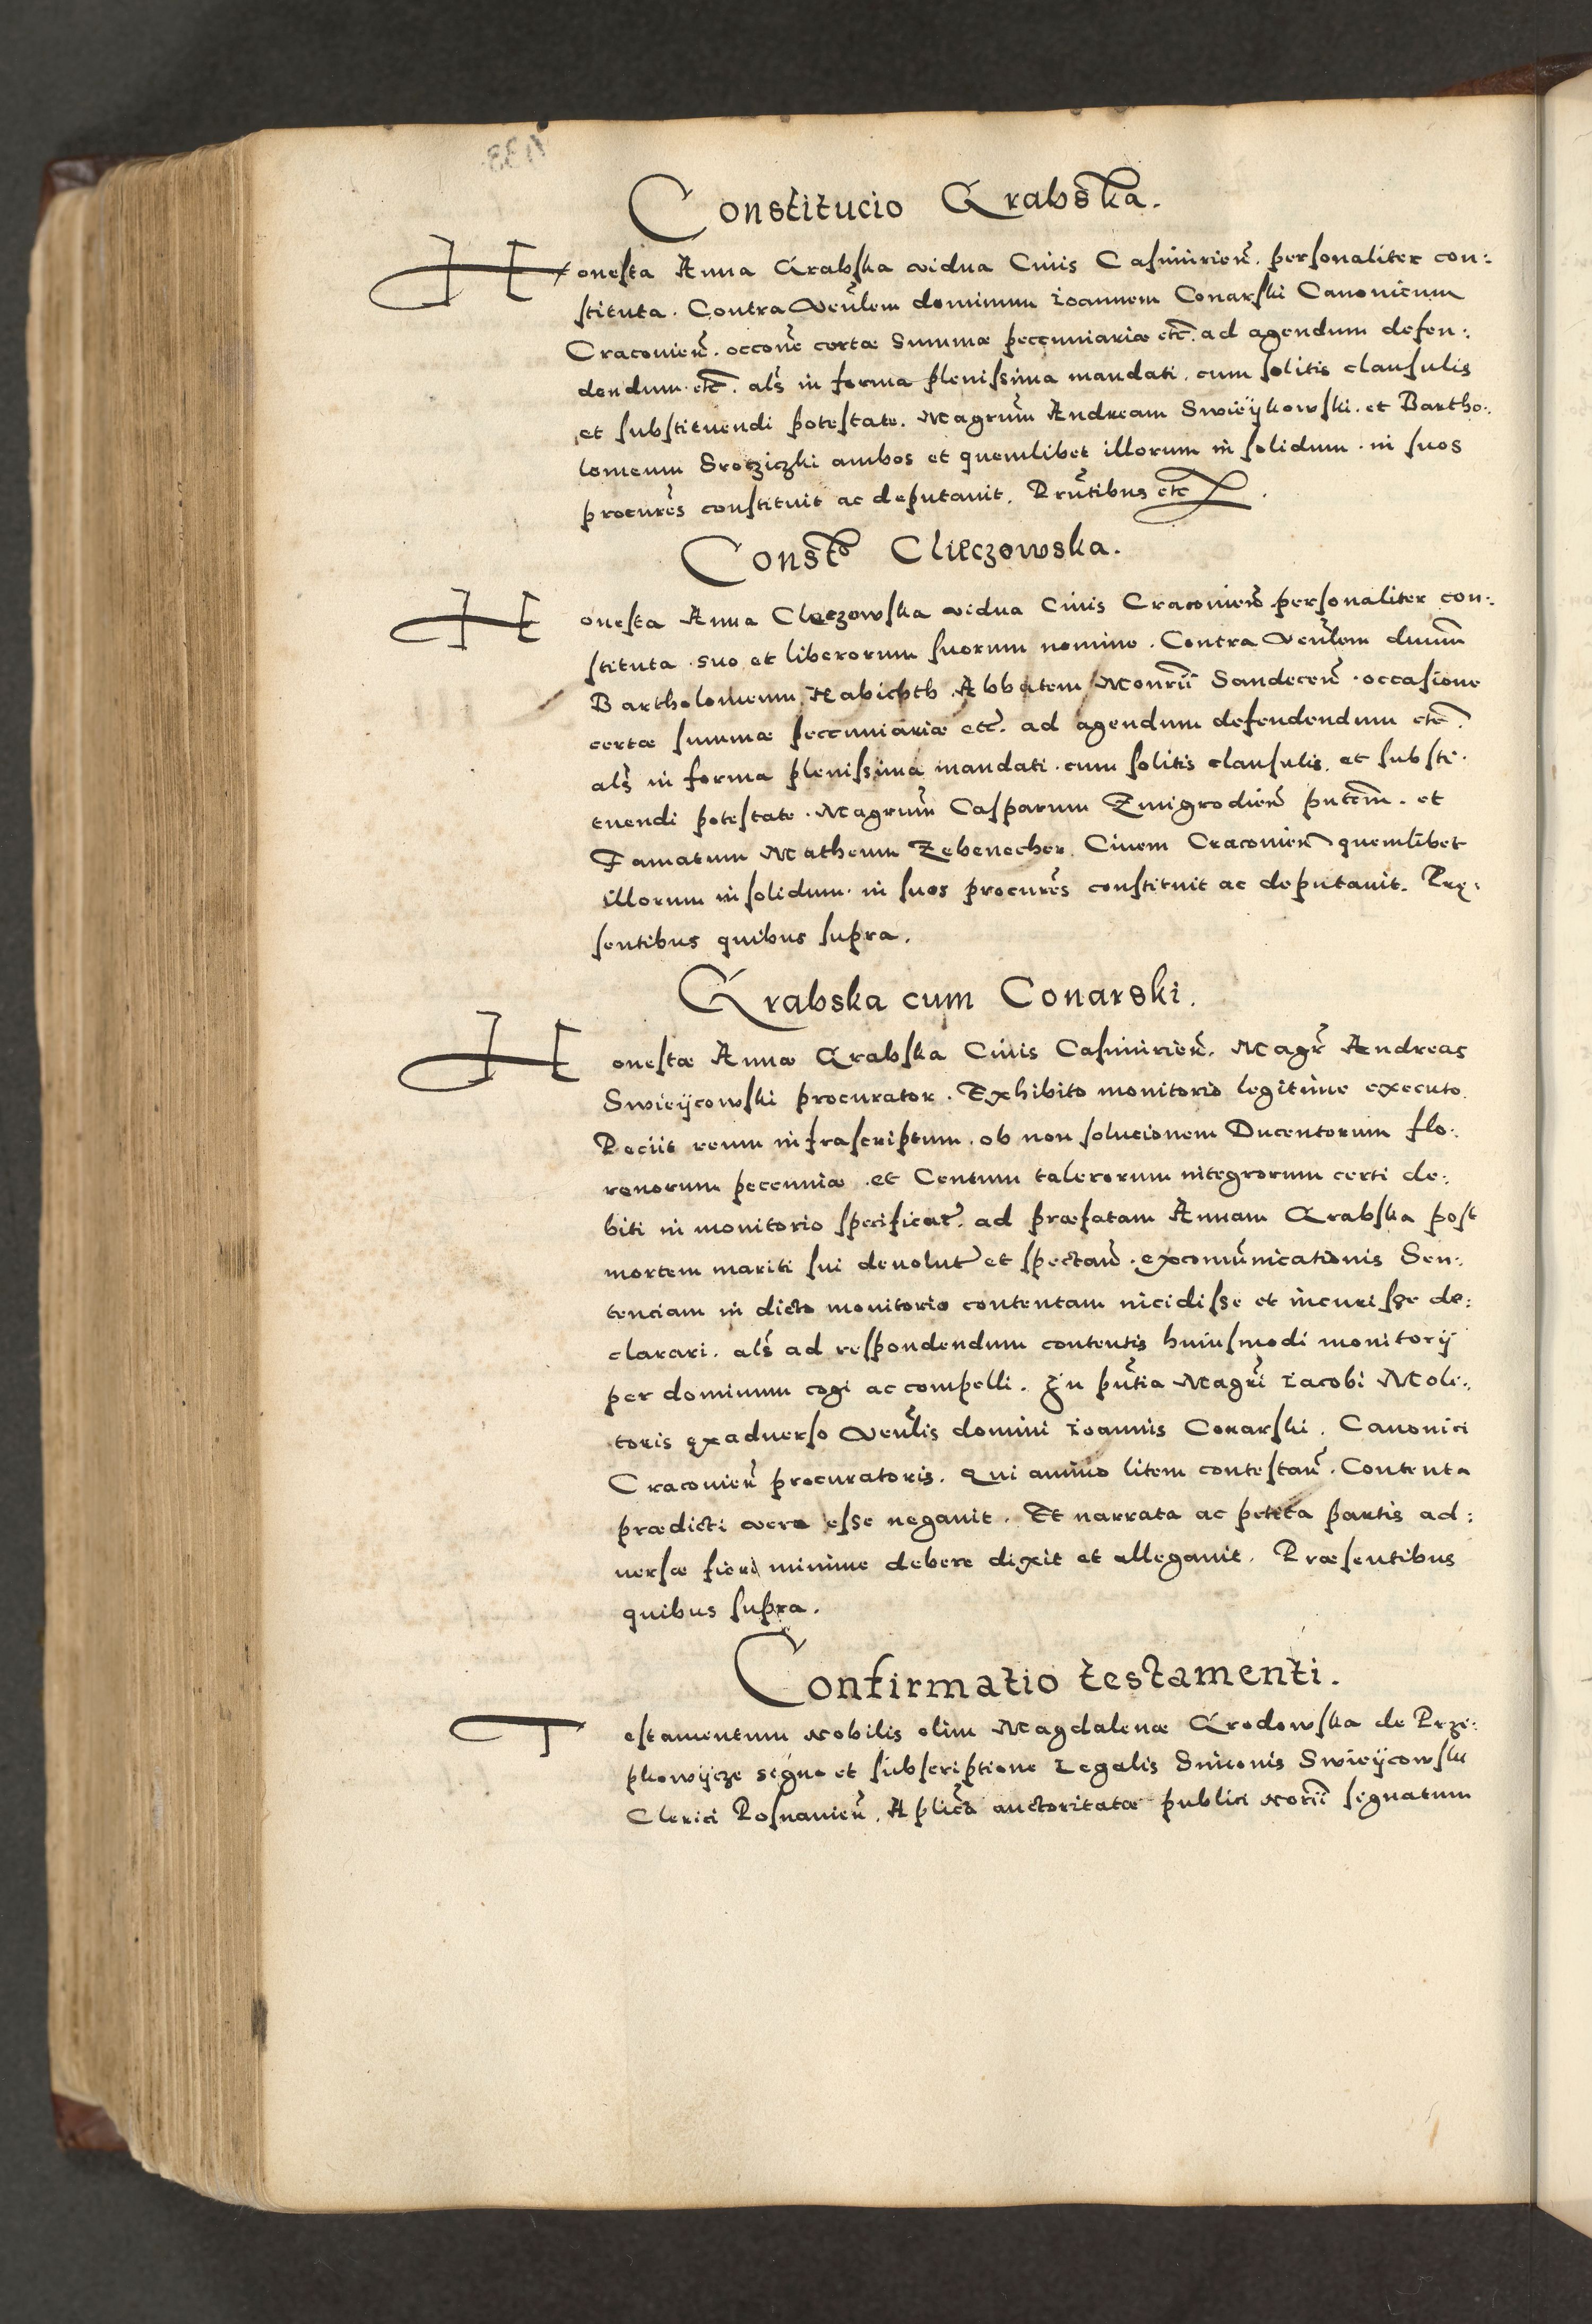 Constitucio Grabska.
Honesta Anna Grabska vidua Civis Casimirien̄. personaliter con:
stituta. Contra Veñlem dominum Ioannem Conarski Canonicum
Cracovien̄. occoñe certæ summæ peccuniariæ etc̄. ad agendum defen:
dendum. etc̄. als̄ in forma plenissima mandati. cum solitis clausulis
et substituendi potestate. Magrum̄ Andream Swieÿkowski. et Bartho:
lomeum Sroczizki ambos et quemlibet illorum in solidum. in suos
procures̄ constituit ac deputavit. Prñtibus etc
Const̄o Clieczowska.
Honesta Anna Cleczowska vidua Civis Cracovien̄. personaliter con:
stituta. suo et liberorum suorum nomine. Contra Veñlem dnum̄
Bartholomeum Habichth Abbatem Monrii̅ Sandecen̄. occasione
certæ summæ peccuniariæ etc̄. ad agendum defendendum etc̄.
als̄ in forma plenissima mandati. cum solitis clausulis. et substi:
tuendi potestate. Magrum̄ Casparum Zmigrodien̄ pñtem. et
Famatum Matheum Zebenecher. Civem Cracovien̄ quemlibet
illorum in solidum. in suos procures̄ constituit ac deputavit. Prę:
sentibus quibus supra.
Grabska cum Conarski.
Honestæ Annæ Grabska Civis Casimirien̄. Magr̄ Andreas
Swieÿcowski procurator. Exhibito monitorio legitime executo
Peciit reum infrascriptum. ob non solucionem Ducentorum flo:
renorum pecenniæ. et Centum talerorum integrorum certi de:
biti in monitorio specificat̄. ad præfatam Annam Grabska post
mortem mariti sui devolut̄ et spectan̄. excomūnicationis Sen:
tenciam in dicto monitorio contentam incidisse et incurisse de:
clarari. als̄ ad respondendum contentis huiusmodi monitorÿ
per dominum cogi ac compelli. In pñtia Magri̅ Iacobi Moli:
toris exadverso Veñlis domini Ioannis Conarski. Canonici
Cracovien̄ procuratoris. Qui animo litem contestan̄. Contenta
prædicti vera esse negavit. Et narrata ac petita partis ad:
versæ fieri minime debere dixit et allegavit. Præsentibus
quibus supra.
Confirmatio testamenti.
Testamentum Nobilis olim Magdalenæ Grodowska de Prze:
pkowÿcze signo et subscriptione Legalis Simonis Swieÿcowski
Clerici Posnanien̄. Aplica̅ auctoritatæ publici Norii̅ segnatum